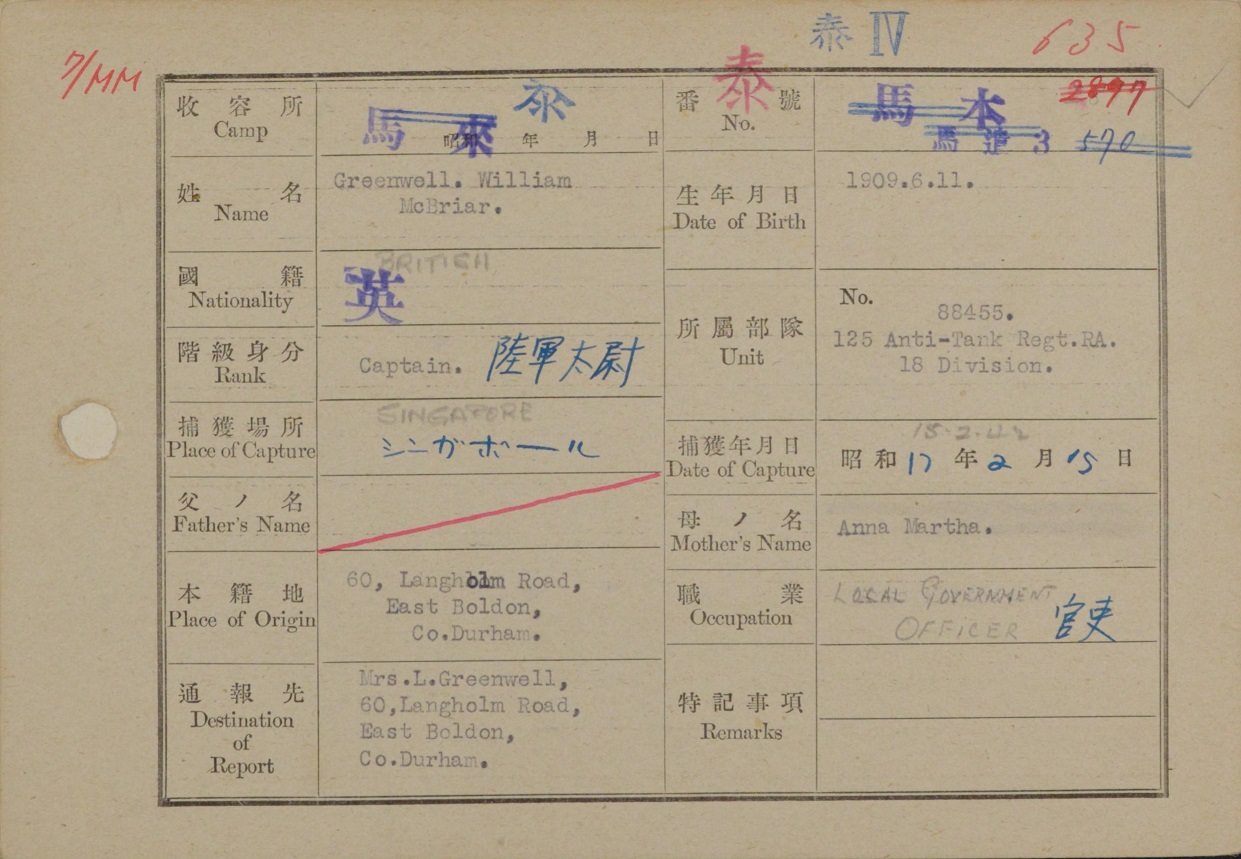 泰 IV
635
7/MM
收容所
Camp
馬來 泰
昭和 年 月 日
番號
No.
泰
馬本
2897
馬 3 570
姓名
Name
Greenwell. William
McBriar.
生年月日
Date of Birth
1909.6.11.
國籍
Nationality
BRITISH
英
所屬部隊
Unit
No.
88455.
125 Anti-Tank Regt.RA.
18 Division.
階級身分
Rank
Captain. 陸軍大尉
捕獲場所
Place of Capture
SINGAPORE
シンガポール
捕獲年月日
Date of Capture
15-2-42
昭和17年2月15日
父ノ名
Father's Name
母ノ名
Mother's Name
Anna Martha.
本籍地
Place of Origin
60, Langholm Road,
East Boldon,
Co.Durham.
職業
Occupation
LOCAL GOVERNMENT
OFFICER 官吏
通報先
Destination
of
Report
Mrs.L.Greenwell,
60,Langholm Road,
East Boldon,
Co.Durham.
特記事項
Remarks